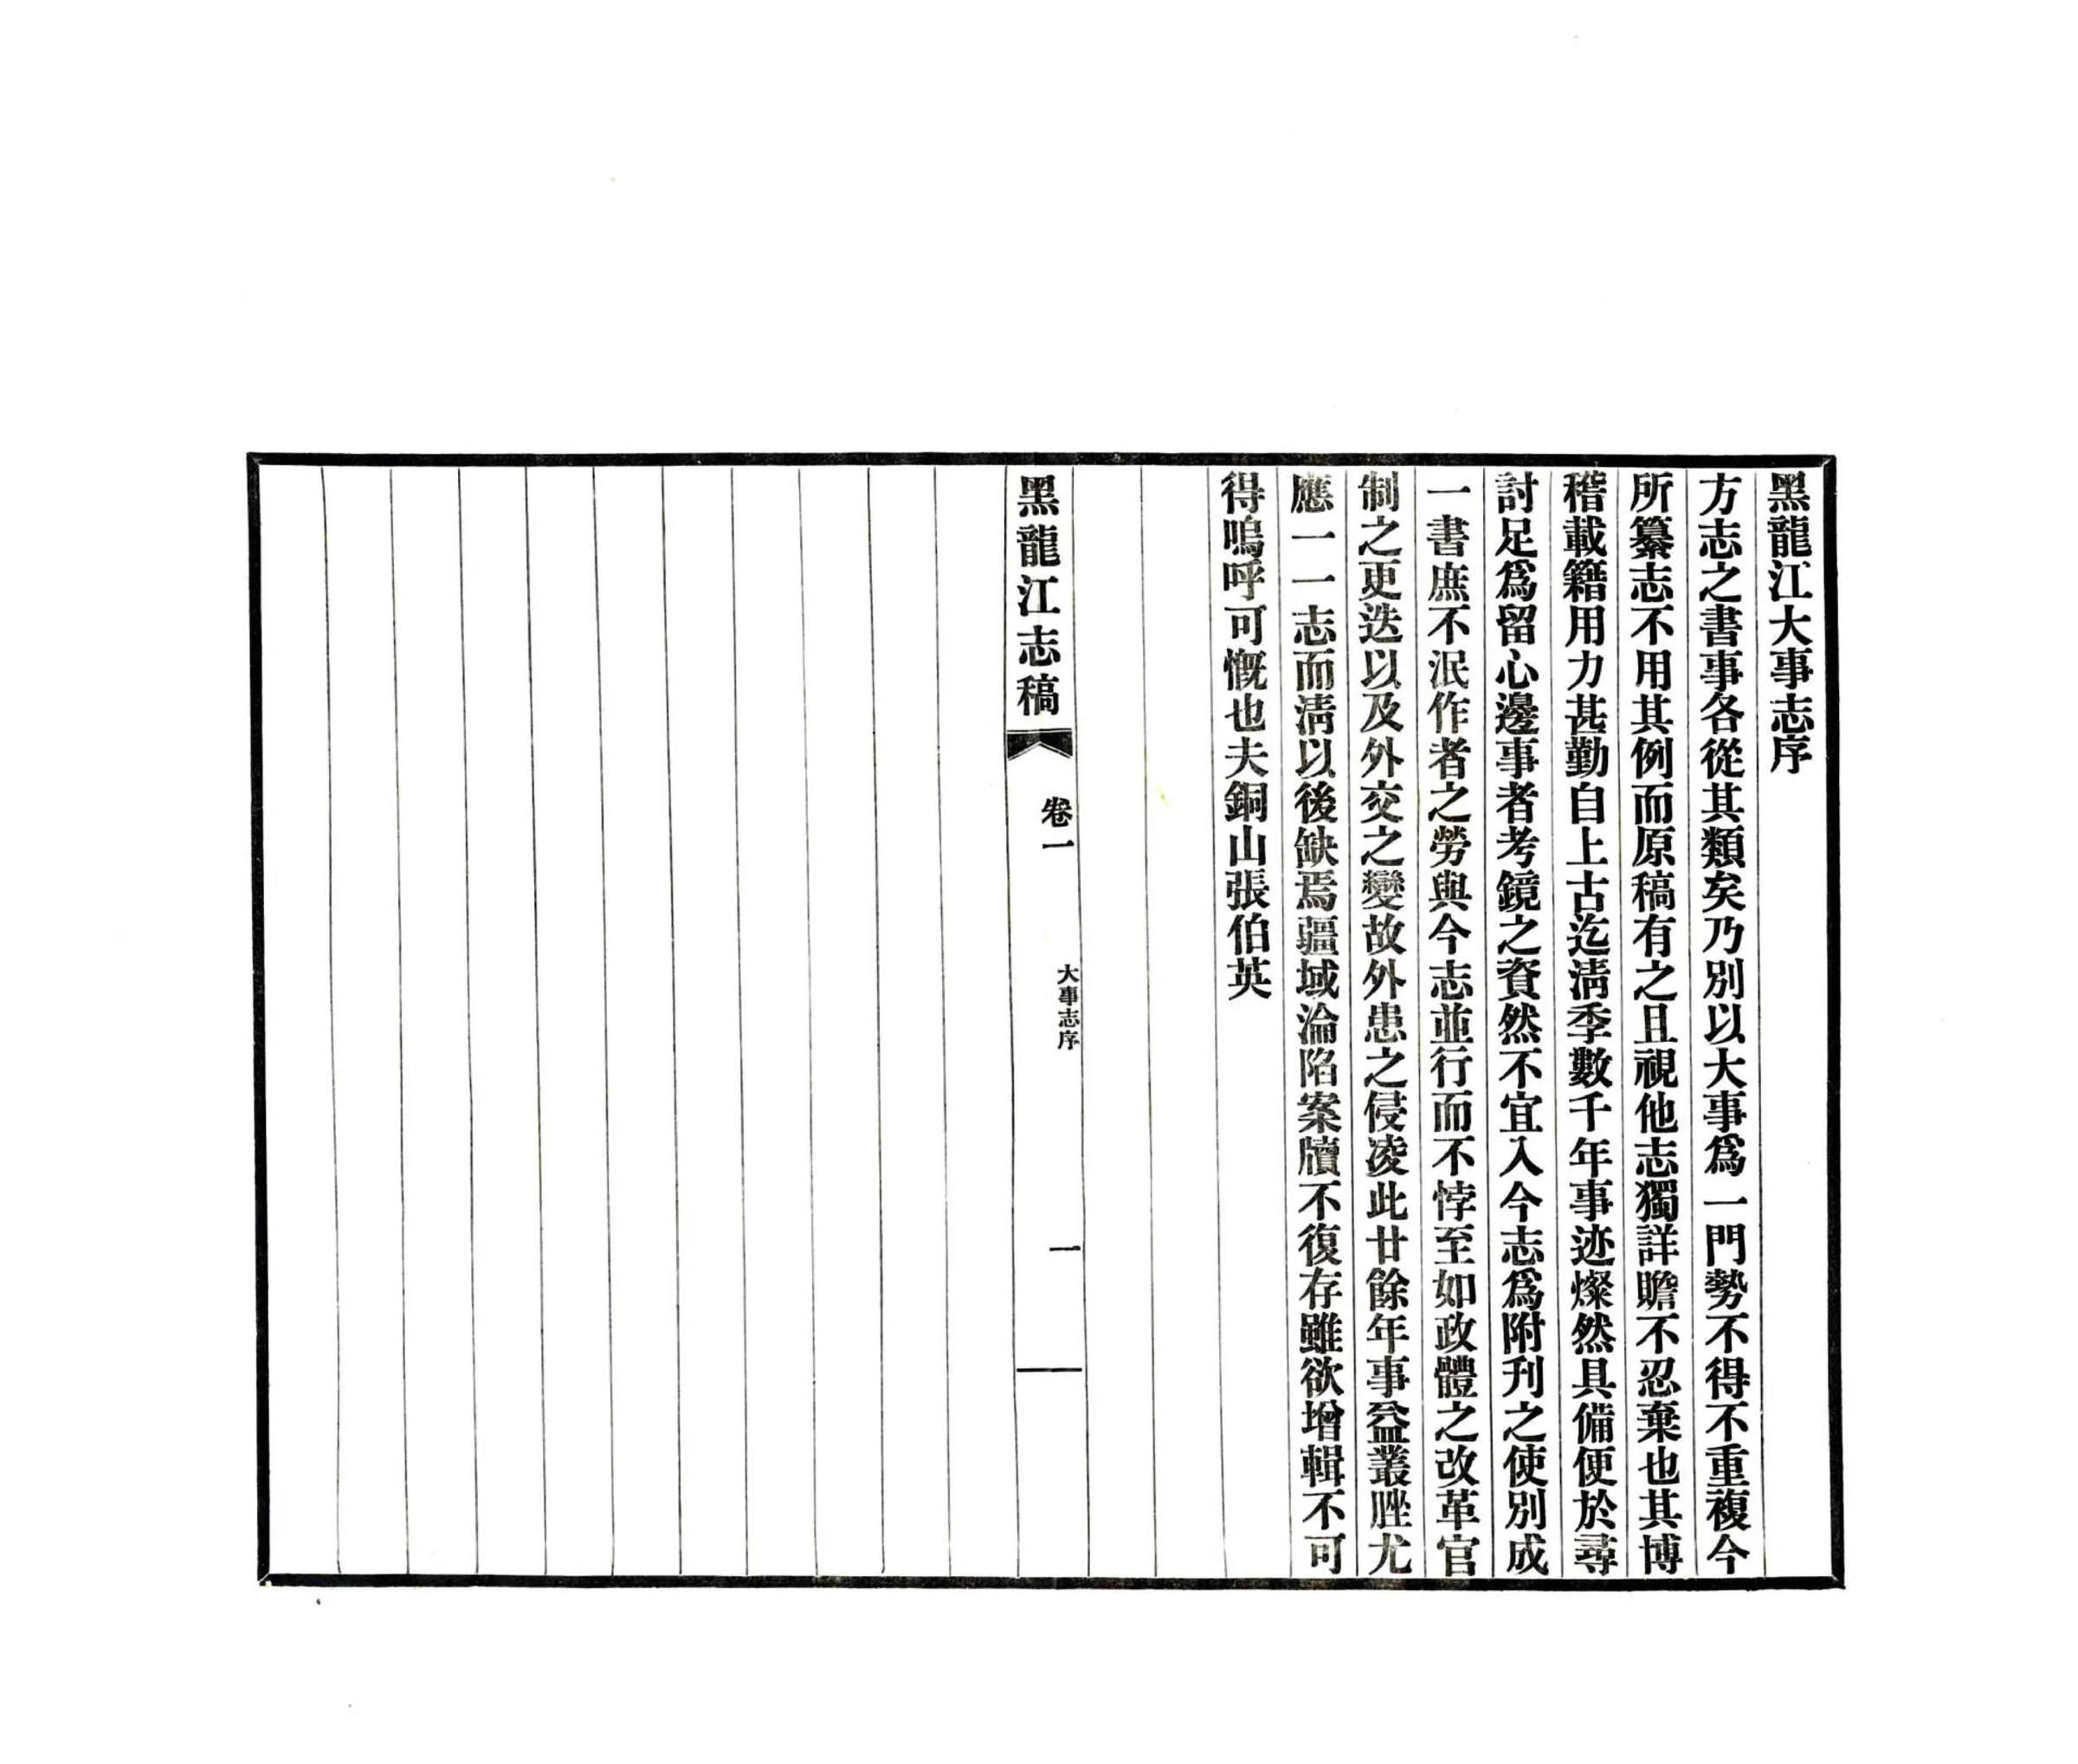 黑龍江大事志序
方志之書事各從其類矣乃別以大事爲一門勢不得不重複今
所纂志不用其例而原稿有之且視他志獨詳贍不忍棄也其博
稽載籍用力甚勤自上古迄淸季數千年事迹燦然具備便於尋
討足爲留心邊事者考鏡之資然不宜入今志爲附刋之使別成
一書庶不泯作者之勞與今志並行而不悖至如政體之改革官
制之更迭以及外交之變故外患之侵凌此廿餘年事益叢脞尤
應一一志而淸以後缺焉疆域淪陷案牘不復存雖欲增輯不可
得嗚呼可慨也夫銅山張伯英
黑龍江志稿
卷一
大事志序
一